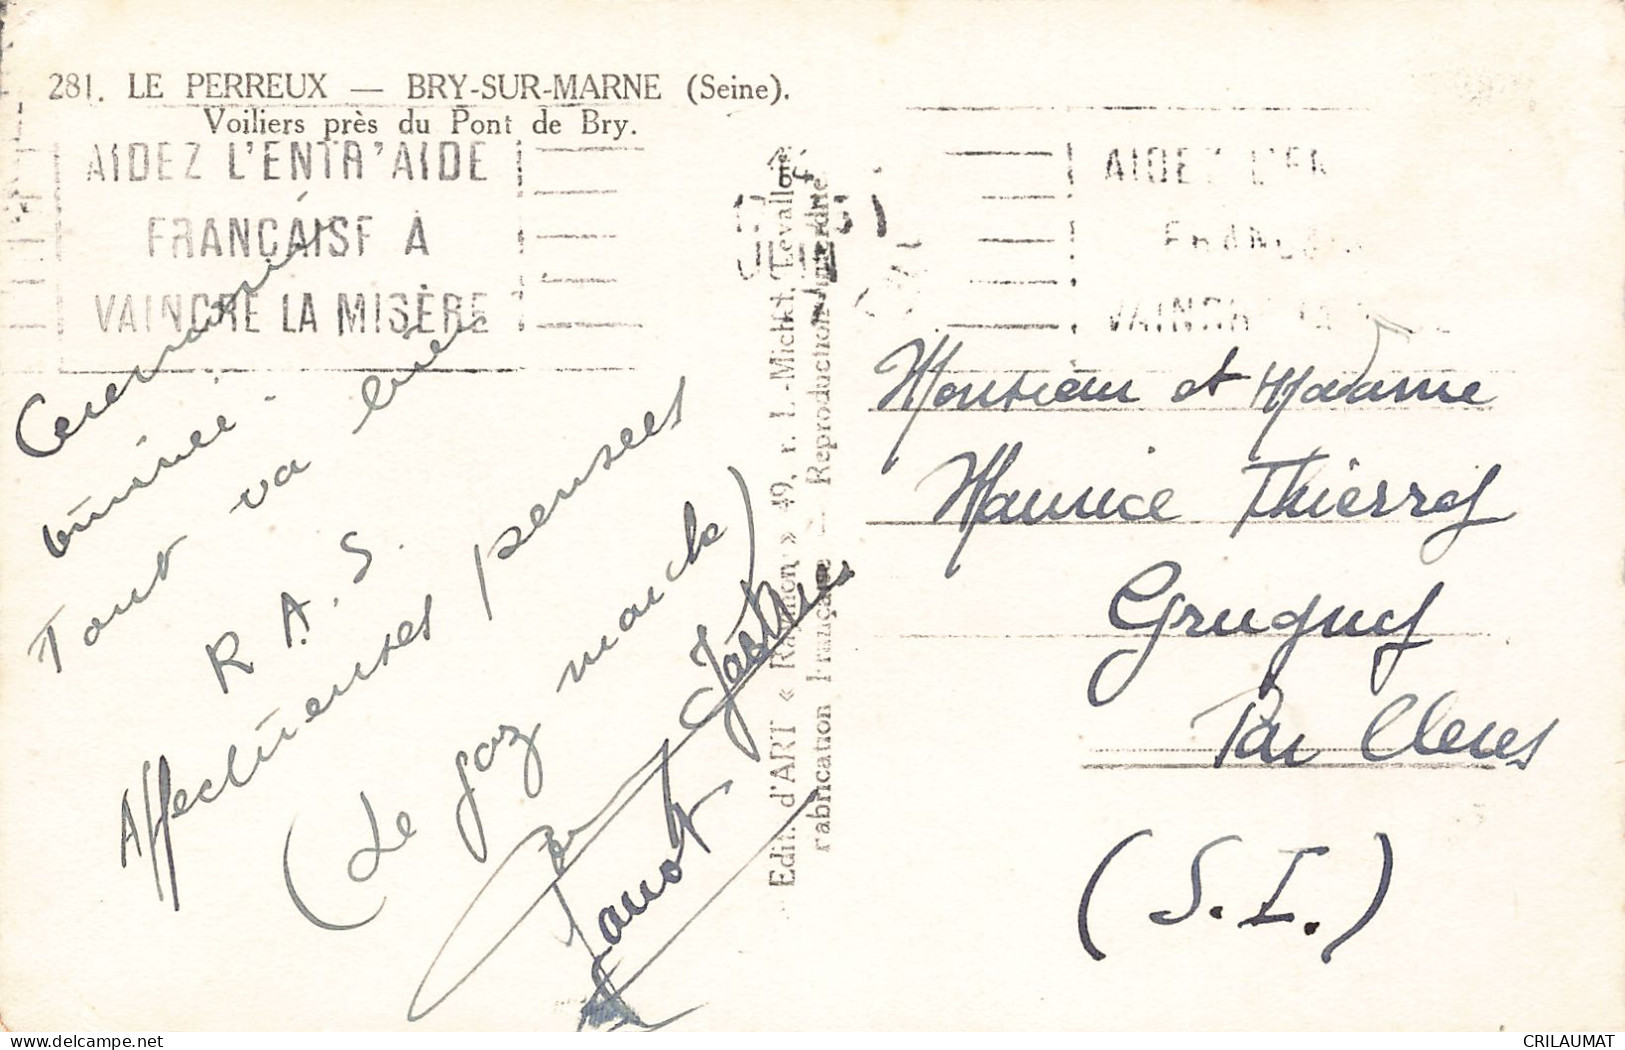 281. LE PERREUX — BRY-SUR-MARNE (Seine).
Voiliers près du Pont de Bry.
AIDEZ L'ENTR'AIDE
FRANÇAISE A
VAINCRE LA MISÈRE
AIDEZ L'EN
FRANÇA
VAINCR
Ceremonie
Tout va bien
R. A. S.
Affectueuses pensees
(Le gaz marche)
Edit. d'ART « Raymon » 49, r. L.-Michel, Levallois
Fabrication Française — Reproduction interdite
Monsieur et Madame
Maurice Thierry
Grugny
Par Cleres
(S. I.)
delcampe.net
CRILAUMAT